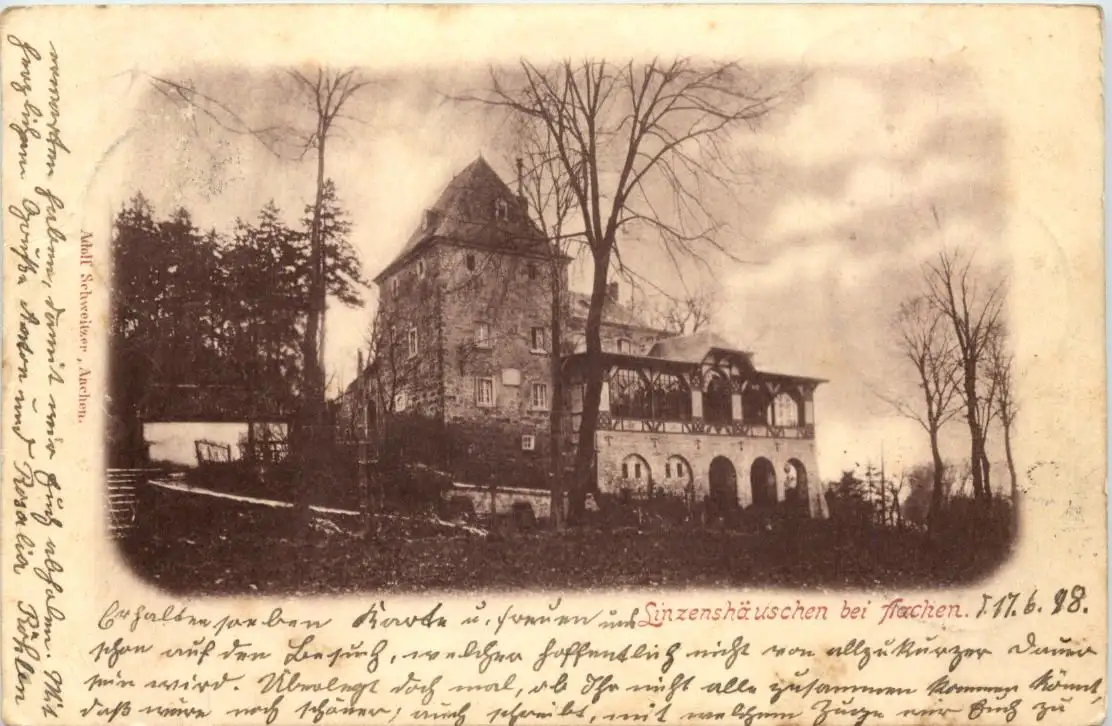 Linzenshäuschen bei Aachen. d. 17. 6. 98.
Erhalten soeben Karte u. freuen uns
schon auf den Besuch, welcher hoffentlich nicht von allzukurzer Dauer
sein wird. Überlegt doch mal, ob Ihr nicht alle zusammen kommen könnt,
daß wäre noch schöner; auch schreibt, mit welchem Zuge wir Euch zu
erwarten haben, damit wir Euch abholen. Mit
herzlichem Gruße Anton und Rosalia
Adolf Schweitzer, Aachen.